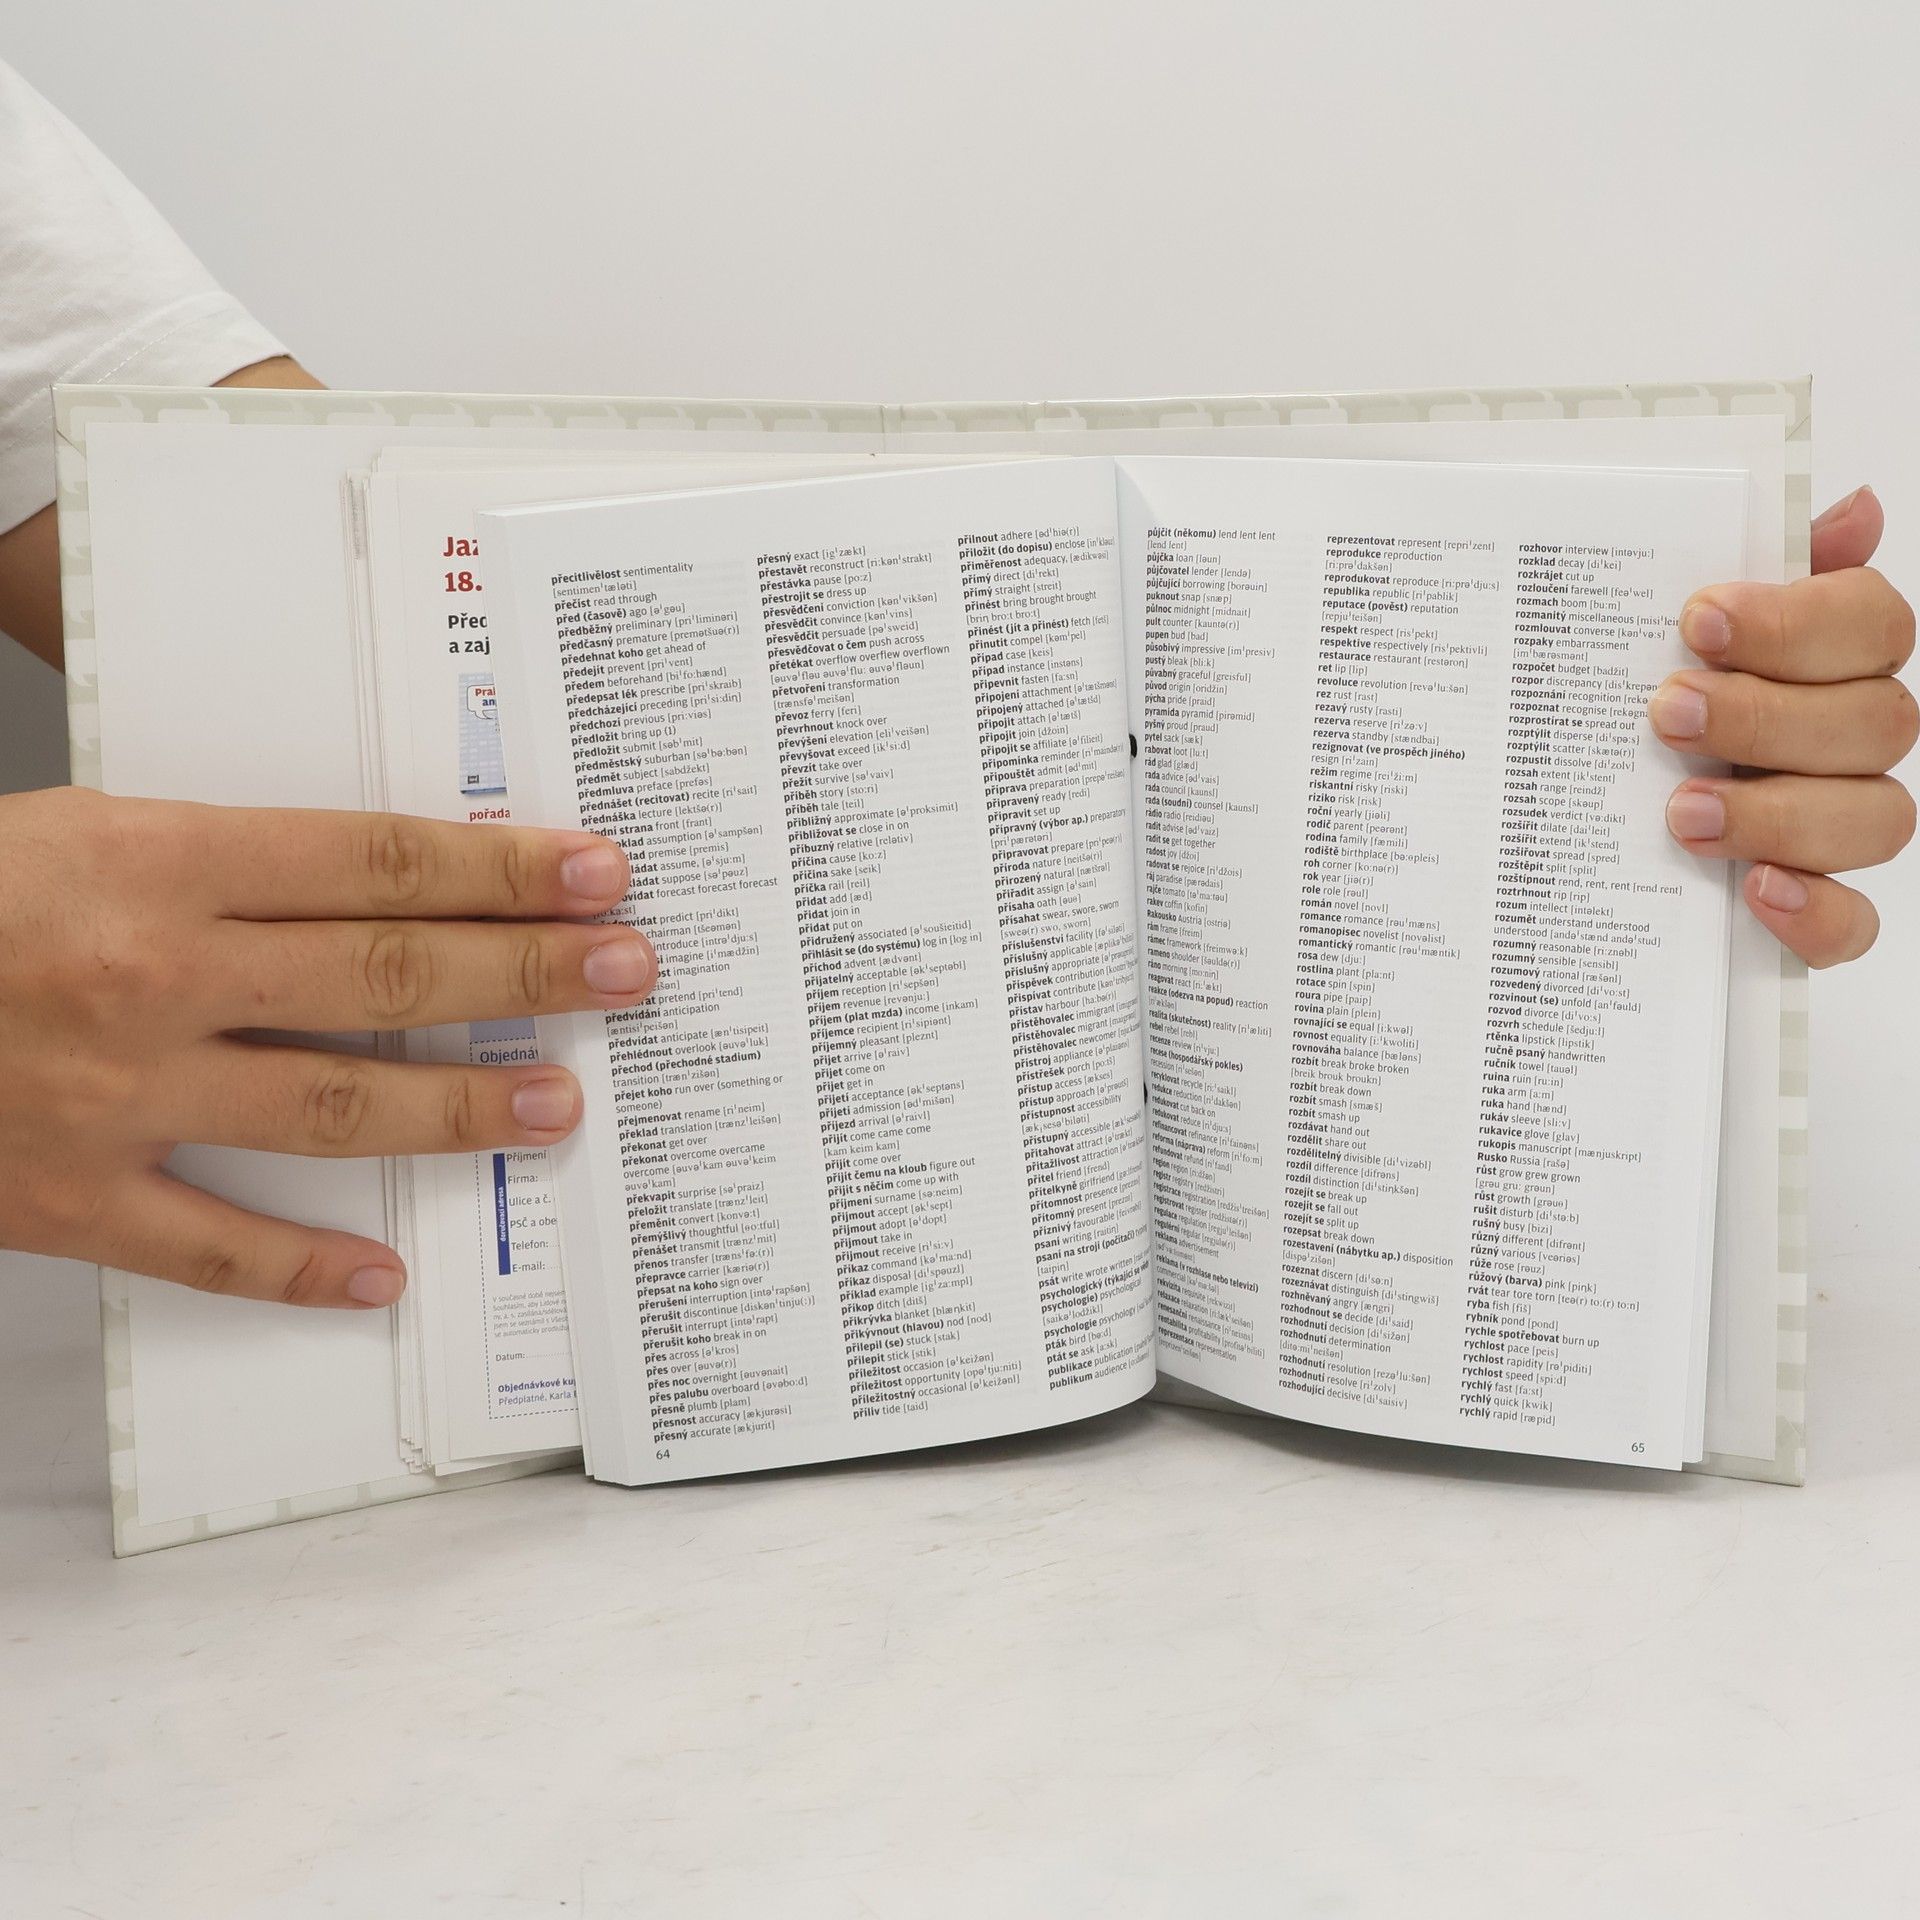 Jaz
18.
Pře
a zaj
pořada
Objedná
Příjmení
Firma:
Ulice a č.
PSČ a obe
Telefon:
E-mail:
doručovací adresa
Datum:
Objednávkové ku
Předplatné, Karla
přecitlivělost sentimentality
[sentimenˈtæləti]
přečíst read through
před (časově) ago [əˈgəu]
předběžný preliminary [priˈliminəri]
předčasný premature [premətšuə(r)]
předehnat koho get ahead of
předejít prevent [priˈvent]
předem beforehand [biˈfo:hænd]
předepsat lék prescribe [priˈskraib]
předcházející preceding [priˈsi:din]
předchozí previous [pri:viəs]
předložit bring up (1)
předložit submit [səbˈmit]
předměstský suburban [səˈbə:bən]
předmět subject [sabdžekt]
předmluva preface [prefəs]
přednášet (recitovat) recite [riˈsait]
přednáška lecture [lektšə(r)]
přední strana front [frant]
oklad assumption [əˈsampšən]
klad premise [premis]
ládat assume, [əˈsju:m]
kládat suppose [səˈpəuz]
ovídat forecast forecast forecast
předpovídat predict [priˈdikt]
chairman [tšeəmən]
introduce [intrəˈdju:s]
imagine [iˈmædžin]
ost imagination
pretend [priˈtend]
předvídání anticipation
[æntisiˈpeišən]
předvídat anticipate [ænˈtisipeit]
přehlédnout overlook [əuvəˈluk]
přechod (přechodné stadium)
transition [trænˈzišən]
přejet koho run over (something or
someone)
přejmenovat rename [riˈneim]
překlad translation [trænzˈleišən]
překonat get over
překonat overcome overcame
overcome [əuvəˈkam əuvəˈkeim
əuvəˈkam]
překvapit surprise [səˈpraiz]
přeložit translate [trænzˈleit]
přeměnit convert [konvə:t]
přemýšlivý thoughtful [θo:tful]
přenášet transmit [trænzˈmit]
přenos transfer [trænsˈfə:(r)]
přepravce carrier [kæriə(r)]
přepsat na koho sign over
přerušení interruption [intəˈrapšən]
přerušit discontinue [diskənˈtinju(:)]
přerušit interrupt [intəˈrapt]
přerušit koho break in on
přes across [əˈkros]
přes over [əuvə(r)]
přes noc overnight [əuvənait]
přes palubu overboard [əvəbo:d]
přesně plumb [plam]
přesnost accuracy [ækjurəsi]
přesný accurate [ækjurit]
64
přesný exact [igˈzækt]
přestavět reconstruct [ri:kənˈstrakt]
přestávka pause [po:z]
přestrojit se dress up
přesvědčení conviction [kənˈvikšən]
přesvědčit convince [kənˈvins]
přesvědčit persuade [pəˈsweid]
přesvědčovat o čem push across
přetékat overflow overflew overflown
[əuvəˈfləu əuvəˈflu: əuvəˈfləun]
přetvoření transformation
[trænsfəˈmeišən]
převoz ferry [feri]
převrhnout knock over
převýšení elevation [eliˈveišən]
převyšovat exceed [ikˈsi:d]
převzít take over
přežít survive [səˈvaiv]
příběh story [sto:ri]
příběh tale [teil]
přibližný approximate [əˈproksimit]
přibližovat se close in on
příbuzný relative [relətiv]
příčina cause [ko:z]
příčina sake [seik]
příčka rail [reil]
přidat add [æd]
přidat join in
přidat put on
přidružený associated [əˈsoušieitid]
přihlásit se (do systému) log in [log in]
příchod advent [ædvənt]
přijatelný acceptable [əkˈseptəbl]
příjem reception [riˈsepšən]
příjem revenue [revənju:]
příjem (plat mzda) income [inkam]
příjemce recipient [riˈsipiənt]
příjemný pleasant [pleznt]
přijet arrive [əˈraiv]
přijet come on
přijet get in
přijetí acceptance [əkˈseptəns]
přijetí admission [ədˈmišən]
příjezd arrival [əˈraivl]
přijít come came come
[kam keim kam]
přijít come over
přijít čemu na kloub figure out
přijít s něčím come up with
příjmení surname [sə:neim]
přijmout accept [əkˈsept]
přijmout adopt [əˈdopt]
přijmout take in
přijmout receive [riˈsi:v]
příkaz command [kəˈma:nd]
příkaz disposal [diˈspəuzl]
příklad example [igˈza:mpl]
příkop ditch [ditš]
přikrývka blanket [blæŋkit]
přikývnout (hlavou) nod [nod]
přilepil (se) stuck [stak]
přilepit stick [stik]
příležitost occasion [əˈkeižən]
příležitost opportunity [opəˈtju:niti]
příležitostný occasional [əˈkeižənl]
příliv tide [taid]
přilnout adhere [ədˈhiə(r)]
přiložit (do dopisu) enclose
přiměřenost adequacy, [ædikwəsi]
přímý direct [diˈrekt]
přímý straight [streit]
přinést bring brought brought
[briŋ bro:t bro:t]
přinést (jít a přinést) fetch [fetš]
přinutit compel [kəmˈpel]
případ case [keis]
případ instance [instəns]
připevnit fasten [fa:sn]
připojení attachment [əˈtætšmənt]
připojený attached [əˈtætšd]
připojit attach [əˈtætš]
připojit join [džoin]
připojit se affiliate [əˈfilieit]
připomínka reminder [riˈmaində(r)]
připouštět admit [ədˈmit]
příprava preparation [prepəˈreišən]
připravený ready [redi]
připravit set up
přípravný (výbor ap.) preparatory
[priˈpærətəri]
připravovat prepare [priˈpeə(r)]
příroda nature [neitšə(r)]
přirozený natural [nætšrəl]
přiřadit assign [əˈsain]
přísaha oath [əuθ]
přísahat swear, swore, sworn
[sweə(r) swo, sworn]
příslušenství facility [fəˈsiləti]
příslušný applicable
příslušný appropriate
příspěvek contribution
přispívat contribute
přístav harbour [ha:bə(r)]
přistěhovalec immigrant
přistěhovalec migrant
přistěhovalec newcomer
přístroj appliance
přístřešek porch [po:tš]
přístup access [ækses]
přístup approach [əˈprəutš]
přístupnost accessibility
[ækˌsesəˈbiləti]
přístupný accessible
přitahovat attract [əˈtrækt]
přitažlivost attraction
přítel friend [frend]
přítelkyně girlfriend
přítomnost presence
přítomný present
příznivý favourable
psaní writing [raitin]
psaní na stroji (počítači)
[taipin]
psát write wrote written
psychologický (týkající se
psychologie) psychological
[saikəˈlodžikl]
psychologie psychology
pták bird [bə:d]
ptát se ask [a:sk]
publikace publication
publikum audience
půjčit (někomu) lend lent lent
[lend lent]
půjčka loan [ləun]
půjčovatel lender [lendə]
půjčující borrowing [borəuin]
puknout snap [snæp]
půlnoc midnight [midnait]
pult counter [kauntə(r)]
pupen bud [bad]
působivý impressive [imˈpresiv]
pustý bleak [bli:k]
půvabný graceful [greisful]
původ origin [oridžin]
pýcha pride [praid]
pyramida pyramid [pirəmid]
pyšný proud [praud]
pytel sack [sæk]
rabovat loot [lu:t]
rád glad [glæd]
rada advice [ədˈvais]
rada council [kaunsl]
rada (soudní) counsel [kaunsl]
rádio radio [reidiəu]
radit advise [ədˈvaiz]
radit se get together
radost joy [džoi]
radovat se rejoice [riˈdžois]
ráj paradise [pærədais]
rajče tomato [təˈma:təu]
rakev coffin [kofin]
Rakousko Austria [ostriə]
rám frame [freim]
rámec framework [freimwə:k]
rameno shoulder [šəuldə(r)]
ráno morning [mo:nin]
reagovat react [ri:ˈækt]
reakce (odezva na popud) reaction
[riˈækšən]
realita (skutečnost) reality [riˈæliti]
rebel rebel [rebl]
recenze review [riˈvju:]
recese (hospodářský pokles)
recession [riˈsešən]
recyklovat recycle [ri:ˈsaikl]
redukce reduction [riˈdakšən]
redukovat cut back on
redukovat reduce [riˈdju:s]
refinancovat refinance [riˈfainəns]
reforma (náprava) reform [riˈfo:m]
refundovat refund [riˈfand]
region region [ri:džən]
registr registry [redžistri]
registrace registration [redžisˈtreišən]
registrovat register [redžistə(r)]
regulace regulation [regjuˈleišən]
regulérní regular [regjulə(r)]
reklama advertisement
reklama (v rozhlase nebo televizi)
commercial
rekvizita requisite [rekwizit]
relaxace relaxation
renesanční renaissance
rentabilita profitability
reprezentace representation
reprezentovat represent [repriˈzent]
reprodukce reproduction
[ri:prəˈdakšən]
reprodukovat reproduce [ri:prəˈdju:s]
republika republic [riˈpablik]
reputace (pověst) reputation
[repjuˈteišən]
respekt respect [risˈpekt]
respektive respectively [risˈpektivli]
restaurace restaurant [restəron]
ret lip [lip]
revoluce revolution [revəˈlu:šən]
rez rust [rast]
rezavý rusty [rasti]
rezerva reserve [riˈzə:v]
rezerva standby [stændbai]
rezignovat (ve prospěch jiného)
resign [riˈzain]
režim regime [reiˈži:m]
riskantní risky [riski]
riziko risk [risk]
roční yearly [jiəli]
rodič parent [peərənt]
rodina family [fæmili]
rodiště birthplace [bə:θpleis]
roh corner [ko:nə(r)]
rok year [jiə(r)]
role role [rəul]
román novel [novl]
romance romance [rəuˈmæns]
romanopisec novelist [novəlist]
romantický romantic [rəuˈmæntik]
rosa dew [dju:]
rostlina plant [pla:nt]
rotace spin [spin]
roura pipe [paip]
rovina plain [plein]
rovnající se equal [i:kwəl]
rovnost equality [i:ˈkwoliti]
rovnováha balance [bæləns]
rozbít break broke broken
[breik brouk broukn]
rozbít break down
rozbít smash [smæš]
rozbít smash up
rozdávat hand out
rozdělit share out
rozdělitelný divisible [diˈvizəbl]
rozdíl difference [difrəns]
rozdíl distinction [diˈstiŋkšən]
rozejít se break up
rozejít se fall out
rozejít se split up
rozepsat break down
rozestavení (nábytku ap.) disposition
[dispəˈzišən]
rozeznat discern [diˈsə:n]
rozeznávat distinguish [diˈstingwiš]
rozhněvaný angry [ængri]
rozhodnout se decide [diˈsaid]
rozhodnutí decision [diˈsižən]
rozhodnutí determination
[ditə:miˈneišən]
rozhodnutí resolution [rezəˈlu:šən]
rozhodnutí resolve [riˈzolv]
rozhodující decisive [diˈsaisiv]
rozhovor interview [intəvju:]
rozklad decay [diˈkei]
rozkrájet cut up
rozloučení farewell [feəˈwel]
rozmach boom [bu:m]
rozmanitý miscellaneous
rozmlouvat converse [kənˈvə:s]
rozpaky embarrassment
[imˈbærəsmənt]
rozpočet budget [badžit]
rozpor discrepancy
rozpoznání recognition
rozpoznat recognise
rozprostírat se spread out
rozptýlit disperse [diˈspə:s]
rozptýlit scatter [skætə(r)]
rozpustit dissolve [diˈzolv]
rozsah extent [ikˈstent]
rozsah range [reindž]
rozsah scope [skəup]
rozsudek verdict [və:dikt]
rozšířit dilate [daiˈleit]
rozšířit extend [ikˈstend]
rozšiřovat spread [spred]
rozštěpit split [split]
rozštípnout rend, rent, rent [rend rent]
roztrhnout rip [rip]
rozum intellect [intəlekt]
rozumět understand understood
understood [andəˈstænd andəˈstud]
rozumný reasonable [ri:znəbl]
rozumný sensible [sensibl]
rozumový rational [ræšənl]
rozvedený divorced [diˈvo:st]
rozvinout (se) unfold [anˈfəuld]
rozvod divorce [diˈvo:s]
rozvrh schedule [šedju:l]
rtěnka lipstick [lipstik]
ručně psaný handwritten
ručník towel [tauəl]
ruina ruin [ru:in]
ruka arm [a:m]
ruka hand [hænd]
rukáv sleeve [sli:v]
rukavice glove [glav]
rukopis manuscript [mænjuskript]
Rusko Russia [rašə]
růst grow grew grown
[grəu gru: grəun]
růst growth [grəuθ]
rušit disturb [diˈstə:b]
rušný busy [bizi]
různý different [difrənt]
různý various [veəriəs]
růže rose [rəuz]
růžový (barva) pink [piŋk]
rvát tear tore torn [teə(r) to:(r) to:n]
ryba fish [fiš]
rybník pond [pond]
rychle spotřebovat burn up
rychlost pace [peis]
rychlost rapidity [rəˈpiditi]
rychlost speed [spi:d]
rychlý fast [fa:st]
rychlý quick [kwik]
rychlý rapid [ræpid]
65